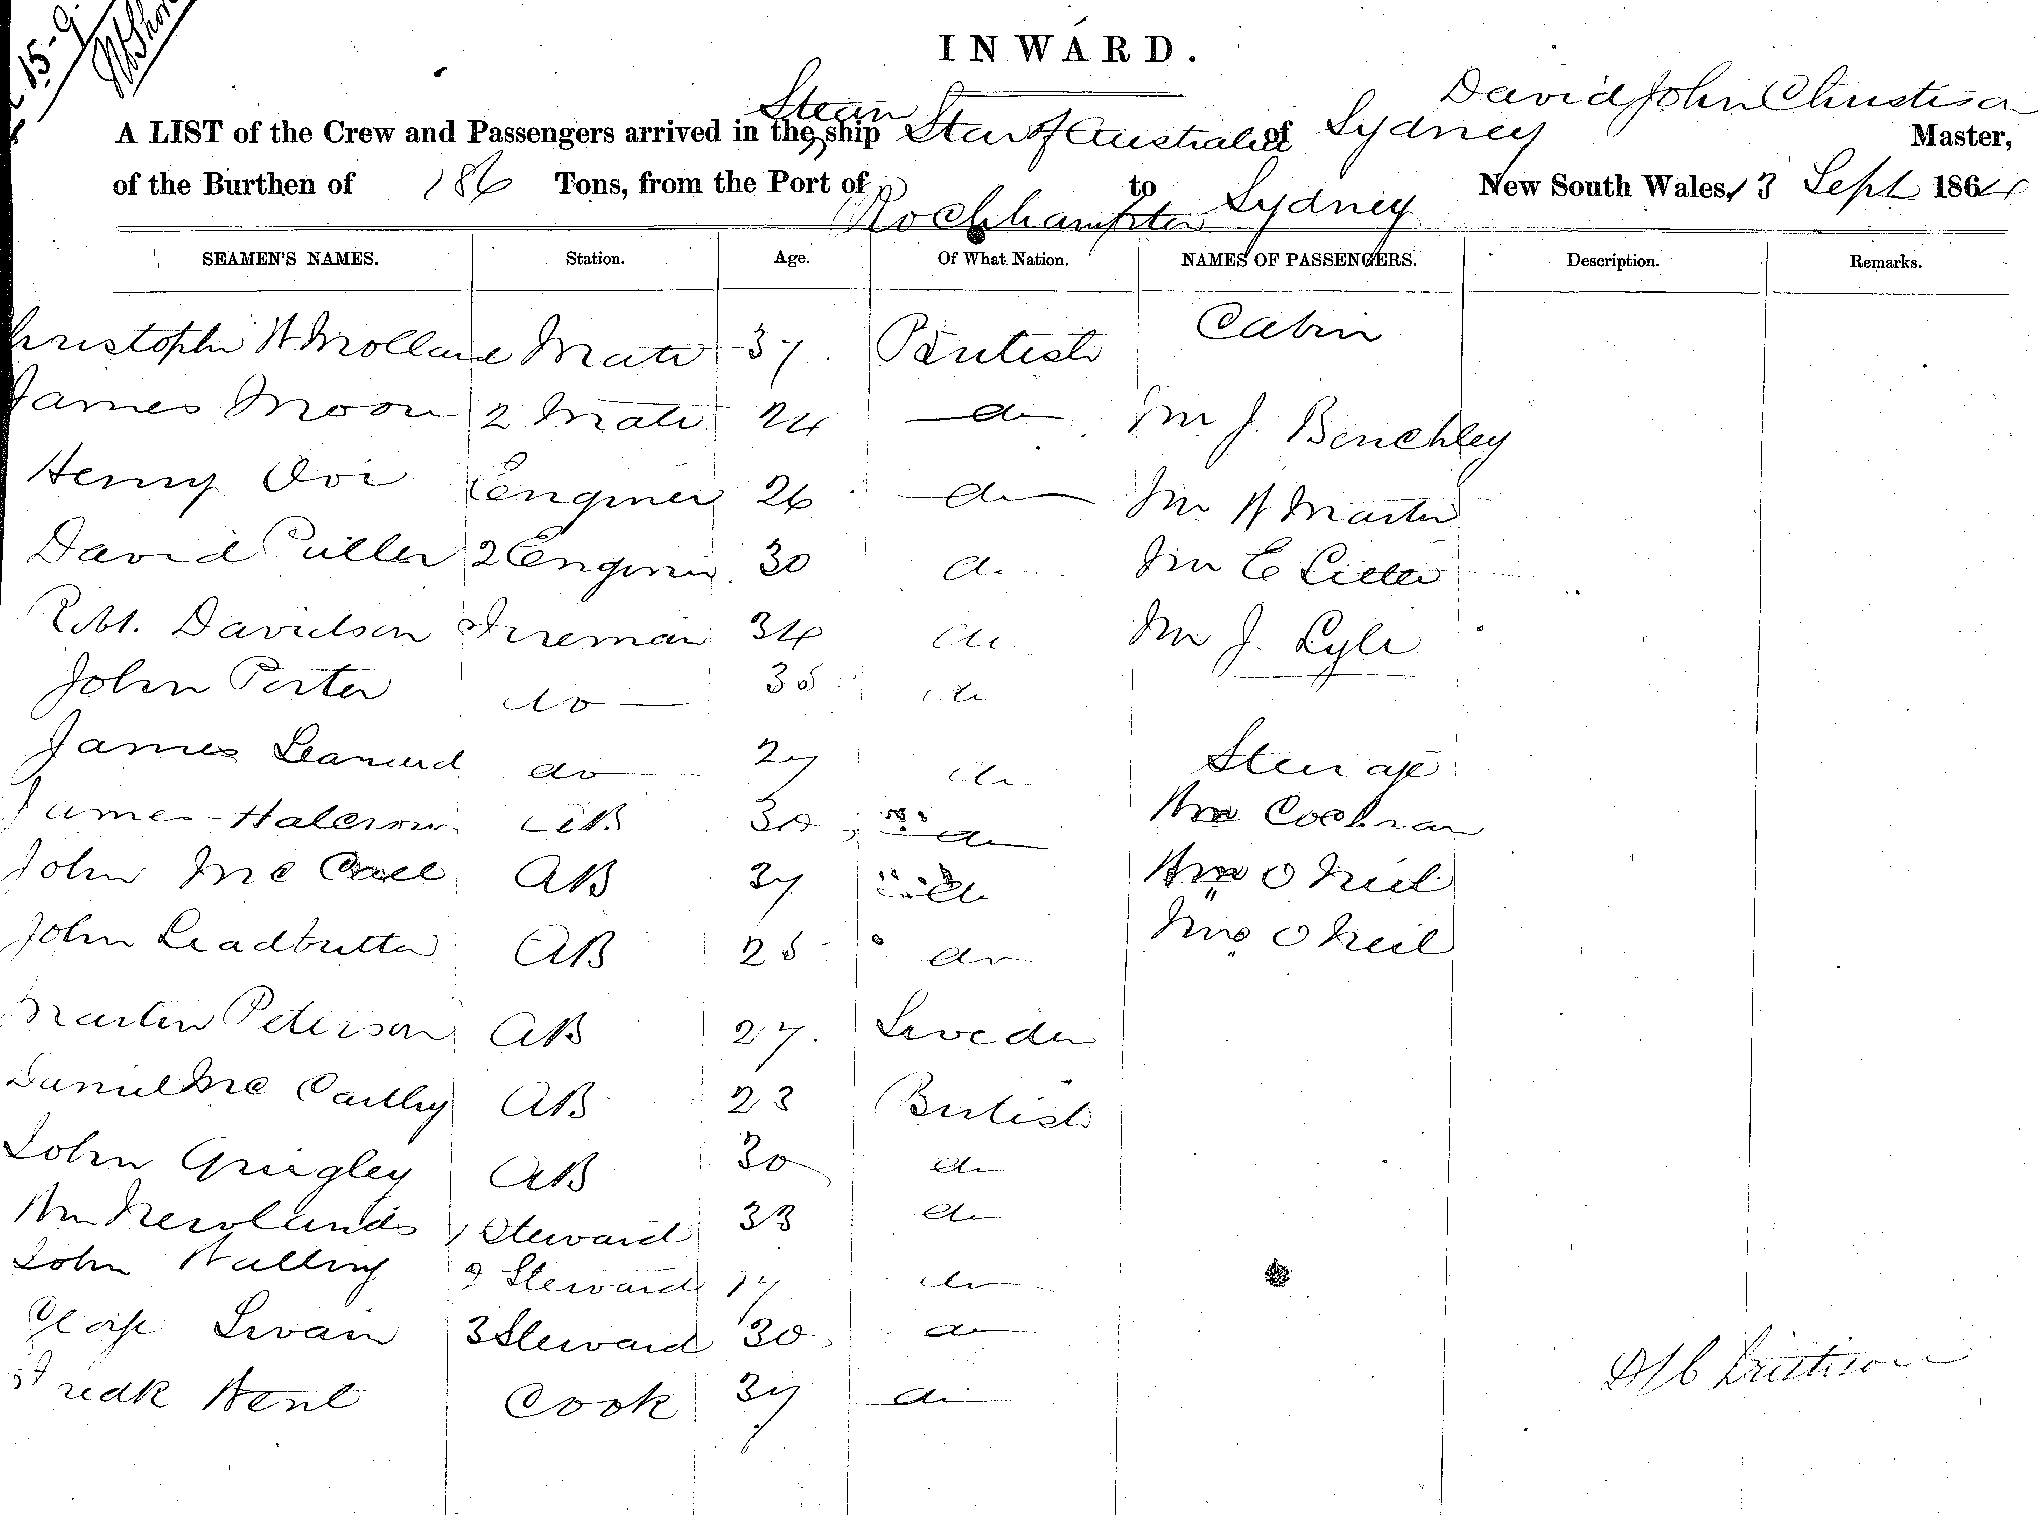 15-9
INWARD.
David John Christison
Steam
A LIST of the Crew and Passengers arrived in the ship Star of Australia of Sydney Master,
of the Burthen of 186 Tons, from the Port of Rockhampton to Sydney New South Wales, 13 Sept 1864
SEAMEN'S NAMES. Station. Age. Of What Nation. NAMES OF PASSENGERS. Description. Remarks.
Cabin
hristopher W Mollard Mate 37 British
James Moon 2 Mate 24 do Mr J. Benchley
Henry Engineer 26 do Mr H Marten
David Puller 2 Engineer 30 do Mr E
Robt. Davidson Fireman 34 do Mr J. Lyle
John Porter do 35 do
James Leanurd do 27 do Steerage
James AB 30 do Cochran
John McCall AB 37 do O Neil
John Leadbutter AB 25 do Mrs O Neil
Martin Peterson AB 27. Sweden
Daniel McCarthy AB 23 British
John Gringley AB 30 do
Wm Newlands 1 Steward 33 do
John Walling 2 Steward 17 do
George Swain 3 Steward 30 do
Fredk Kent Cook 37 do
D J Christison